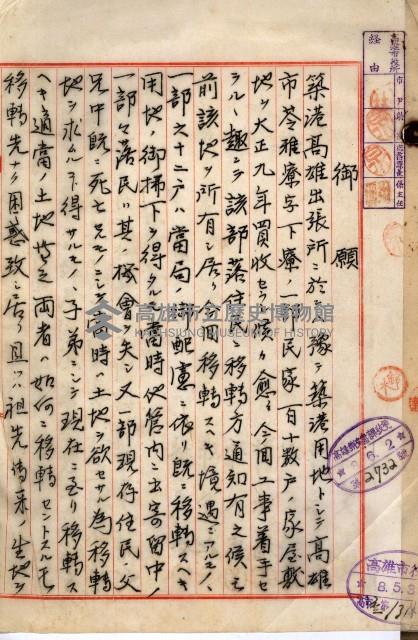 御願
築港高雄出張所ニ於テ豫テ築港用地トシテ高雄
市苓雅寮字下寮ノ一部民家百十數戸ノ家屋敷
地ヲ大正九年買收セラレ居リ愈々今回工事着手セ
ラルヽ趣ニテ該部落住民ニ移轉方通知有之候モ
前該地ヲ所有シ居リ 移轉スヘキ境遇ニアルモノ
一部六十二戸ハ當局ノ御配慮ニ依リ既ニ移轉スヘキ
用地ノ御拂下ヲ得タルモ當時他管内ニ出寄留中ノ
一部部落民ハ其ノ機會ヲ失シ又一部現存住民ノ父
兄中既ニ死亡セルモノニシテ當時土地ヲ欲セサル為移轉
地ヲ求ムルヲ得サルモノヽ子弟ニシテ現在ニ至リ移轉ス
ヘキ適當ノ土地ナク之等両者ハ如何ニ移轉セントスルモ
移轉先ナク困惑致シ居リ且ツハ祖先傳来ノ生地ヲ
高雄市役所
經由
市尹
高雄市立歷史博物館
KAOHSIUNG MUSEUM OF HISTORY
8.6.2
2732
高雄市
8.5.3